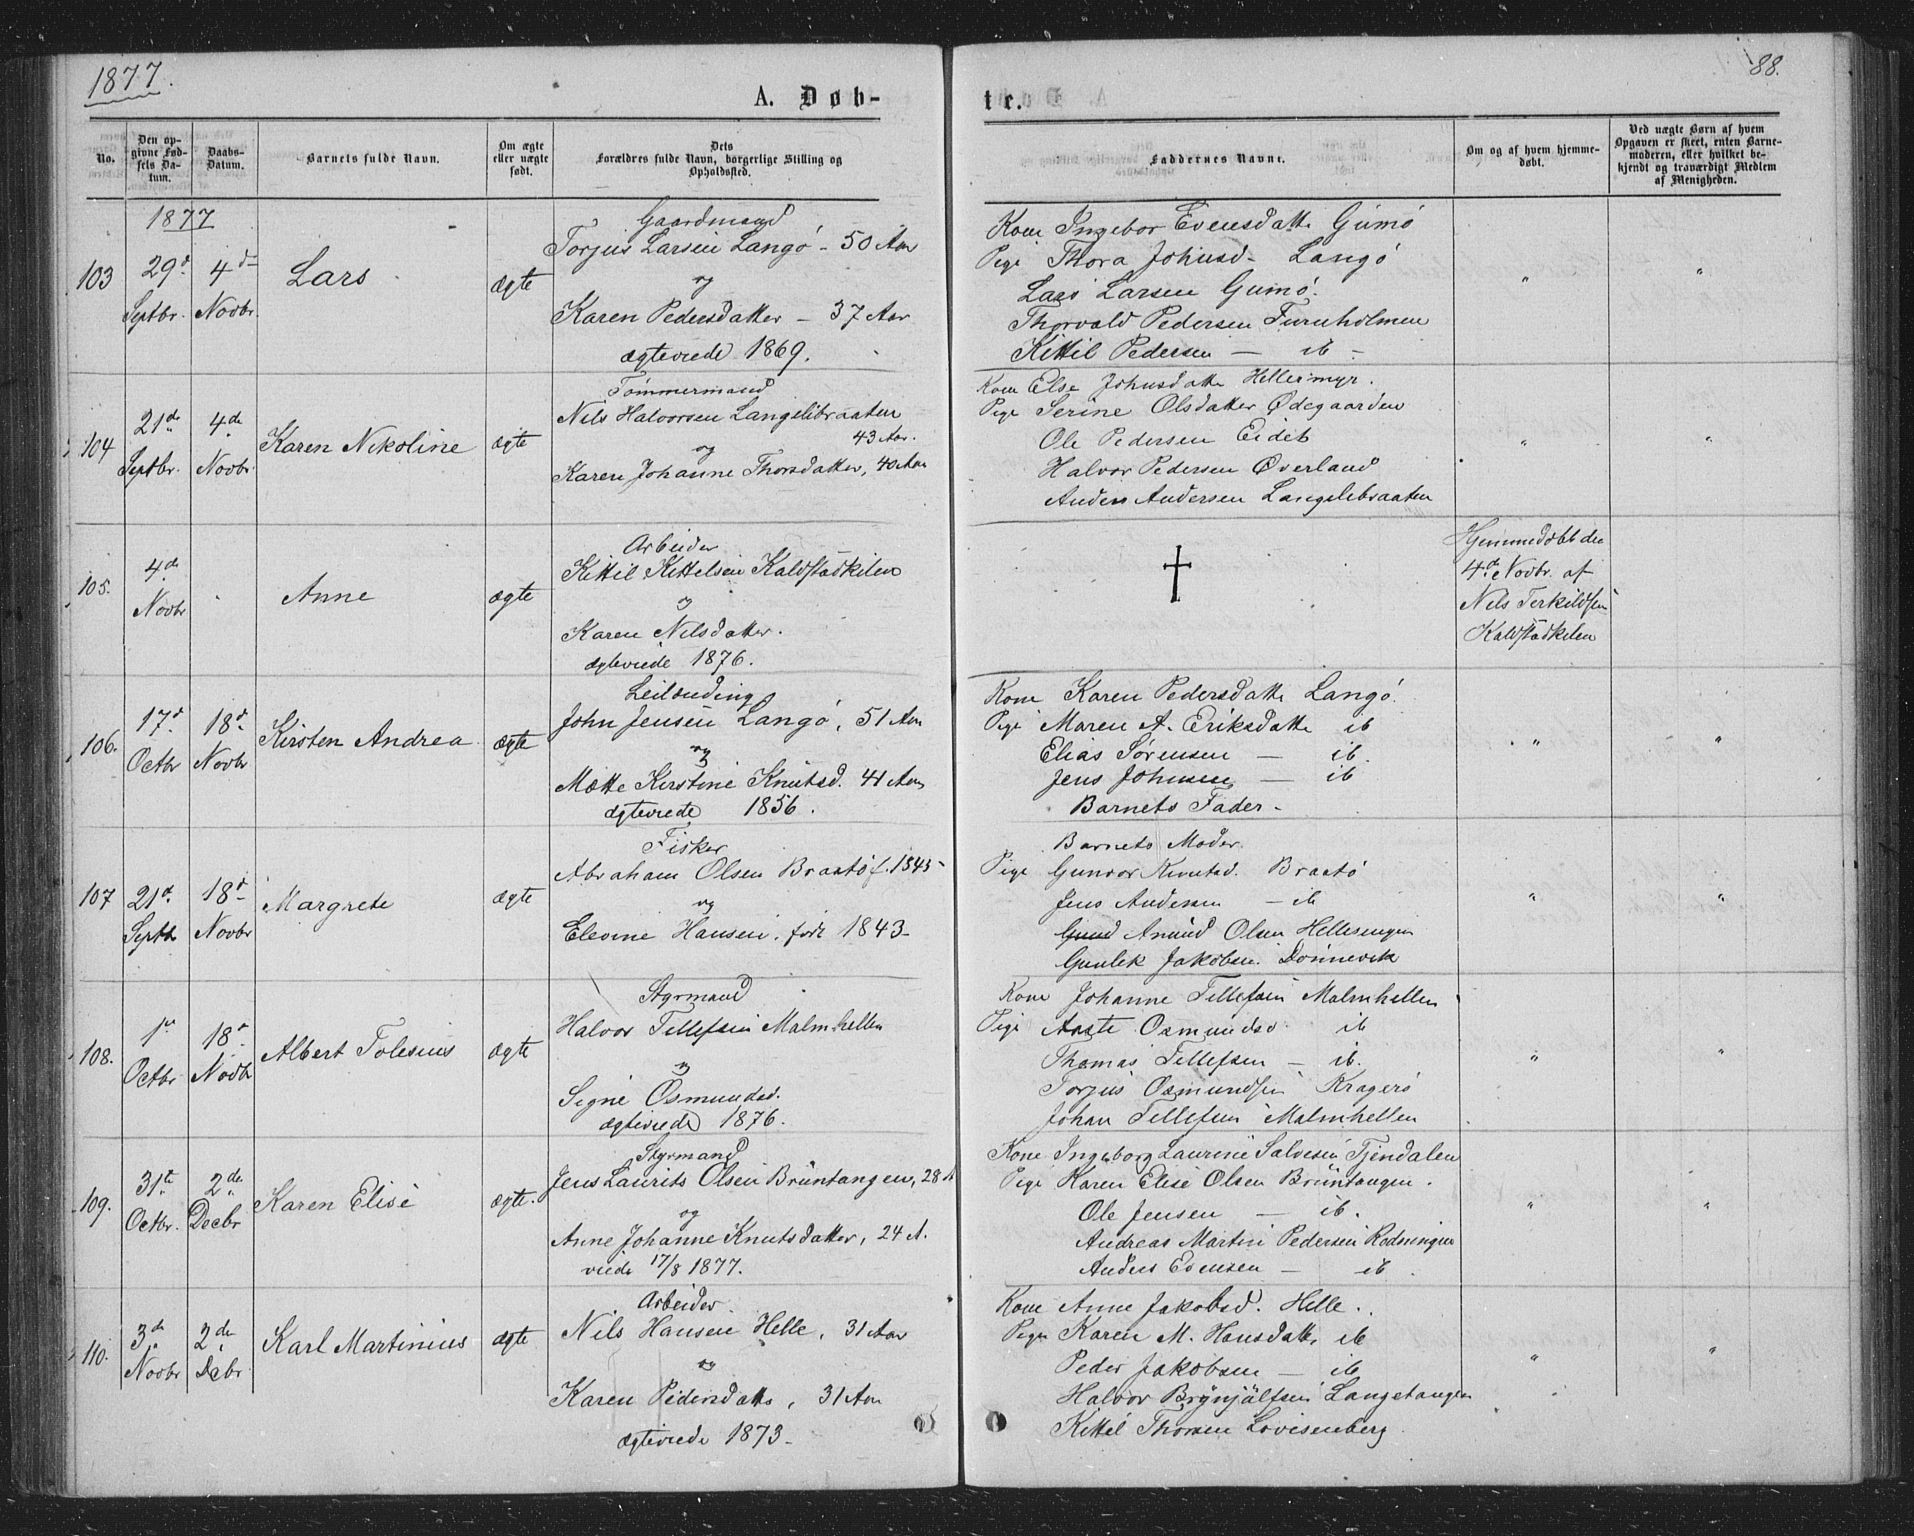 1877.
88.
A. Døb-
tr.
No.
Den op-
givne Fød-
sels Da-
tum.
Daabs-
Datum.
Barnets fulde Navn.
Om ægte
eller uægte
født.
Dets
Forældres fulde Navn, borgerlige Stilling og
Opholdssted.
Faddernes Navne.
Om og af hvem hjemme-
døbt.
Ved uægte Børn af hvem
Opgaven er skeet, enten Barne-
moderen, eller hvilket be-
kjendt og troværdigt Medlem
af Menigheden.
1877
103
29d
Septbr.
4de
Novbr.
Lars
ægte
Gaardmand
Torjus Larsen Langö - 50 Aar
og
Karen Pedersdatter - 37 Aar
ægteviede 1869.
Kone Ingebor Evensdatt Gumö
Pige Thora Johnsd- Langö
Lars Larsen Gumö.
Thorvald Pedersen Furuholmen
Kittil Pedersen - ib -
" "
104
21de
Septbr.
4de
Novbr.
Karen Nikoline
ægte
Tömmermand
Nils Halvorsen Langelibraaten
43 Aar.
og
Karen Johanne Thorsdatter, 40 Aar
Kone Else Johnsdatte Hellermyr.
Pige Serine Olsdatter Ødegaarden
Ole Pedersen Eidet
Halvor Pedersen Øverland
Anders Andersen Langelibraaten
" "
105.
4de
Novbr
Anne
ægte
Arbeider
Kittil Kittelsen Kaldstadkilen
og
Karen Nilsdatter.
ægteviede 1876.
†
Hjemmedöbt den
4de Novbr. af
Nils Terkildsen
Kaldstadkilen
106.
17d
Octbr
18d
Novbr
Kirsten Andrea
ægte
Leilænding
John Jensen Langö, 51 Aar
og
Mætte Kirstine Knutsd. 41 Aar
ægteviede 1856.
Kone Karen Pedersdatte Langö.
Pige Maren A. Eriksdatte ib
Elias Sørensen - ib.
Jens Johnsen - ib
Barnets Fader -
" "
107
21d
Septbr
18d
Novbr
Margrete
ægte
Fisker
Abraham Olsen Braatö f. 1845
og
Elevine Hansen. född 1843-
Barnets Moder
Pige Gunvor Knutsd. Braatö
Jens Andersen - ib
Anund Olsen Hellesengen
Gunlek Jakobsen. Dönnevik
" "
108.
1st
Octbr
18d
Novbr
Albert Tolesius
ægte
Styrmand
Halvor Tellefsen Malmhellen
og
Signe Osmundsd.
ægteviede 1876.
Kone Johanne Tellefsen Malmhellen
Pige Aaste Osmundsd. ib
Thomas Tellefsen - ib.
Torjus Osmundsen Kragerö
Johan Tellefsen Malmhellen
" "
109.
31te
Octbr.
2de
Decbr
Karen Elise
ægte.
Styrmand
Jens Laurits Olsen Brüntangen, 28 A
og
Anne Johanne Knutsdatter, 24 A.
viede 17/8 1877.
Kone Ingeborg Laurine Salvesen Tjendalen
Pige Karen Elise Olsen Brüntangen.
Ole Jensen - ib.
Andreas Martin Pedersen Rodsningen
Anders Evensen - ib
" "
110.
3de
Novbr
2de
Debr
Karl Martinius
ægte
Arbeider
Nils Hansen Helle, 31 Aar
og
Karen Pedersdatte, 31 Aar
ægteviede 1873-
Kone Anne Jakobsd. Helle.
Pige Karen M. Hansdatte ib
Peder Jakobsen - ib
Halvor Brynjülfsen Langetangen
Kittil Thorsen Lovisenberg
" "